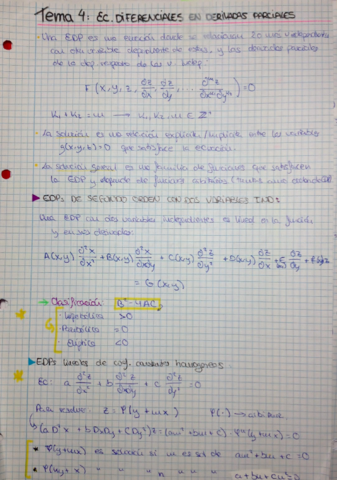 Tema 4: EC. DIFERENCIALES EN DERIVADAS PARCIALES
· Una EDP es una ecuación donde se relacionan 2 o más v independientes
con otra variable dependiente de estas, y las derivadas parciales
de la dep. respecto de las v. indep.
F(x, y, z, ∂z/∂x, ∂z/∂y, ..., ∂ᵐz/∂xᵏ¹∂yᵏ²) = 0
K₁ + K₂ = m → K₁, K₂, m ∈ Z⁺
· La solución es una relación explícita/implícita entre las variables
g(x,y,z)=0 que satisface la ecuación.
· La solución general es una familia de funciones que satisfacen
la EDP y depende de funciones arbitrarias
▶ EDPs DE SEGUNDO ORDEN CON DOS VARIABLES IND:
Una EDP con dos variables independientes es lineal en la función
y en sus derivadas:
A(x,y) ∂²z/∂x² + B(x,y) ∂²z/∂x∂y + C(x,y) ∂²z/∂y² + D(x,y) ∂z/∂x + E ∂z/∂y +
= G(x,y)
→ Clasificación: B² - 4AC
· Hiperbólica >0
· Parabólica =0
· Elíptica <0
▶ EDPs lineales de coef. constante homogéneas
Ec: a ∂²z/∂x² + b ∂²z/∂x∂y + c ∂²z/∂y² = 0
Para resolver: z = φ(y+mx) φ(·) →
φ''(y+mx) = 0
* φ(y+mx) es solución si m es sol de am² + bm + c = 0
* φ(my+x) " " " " " a + bm + cm² = 0